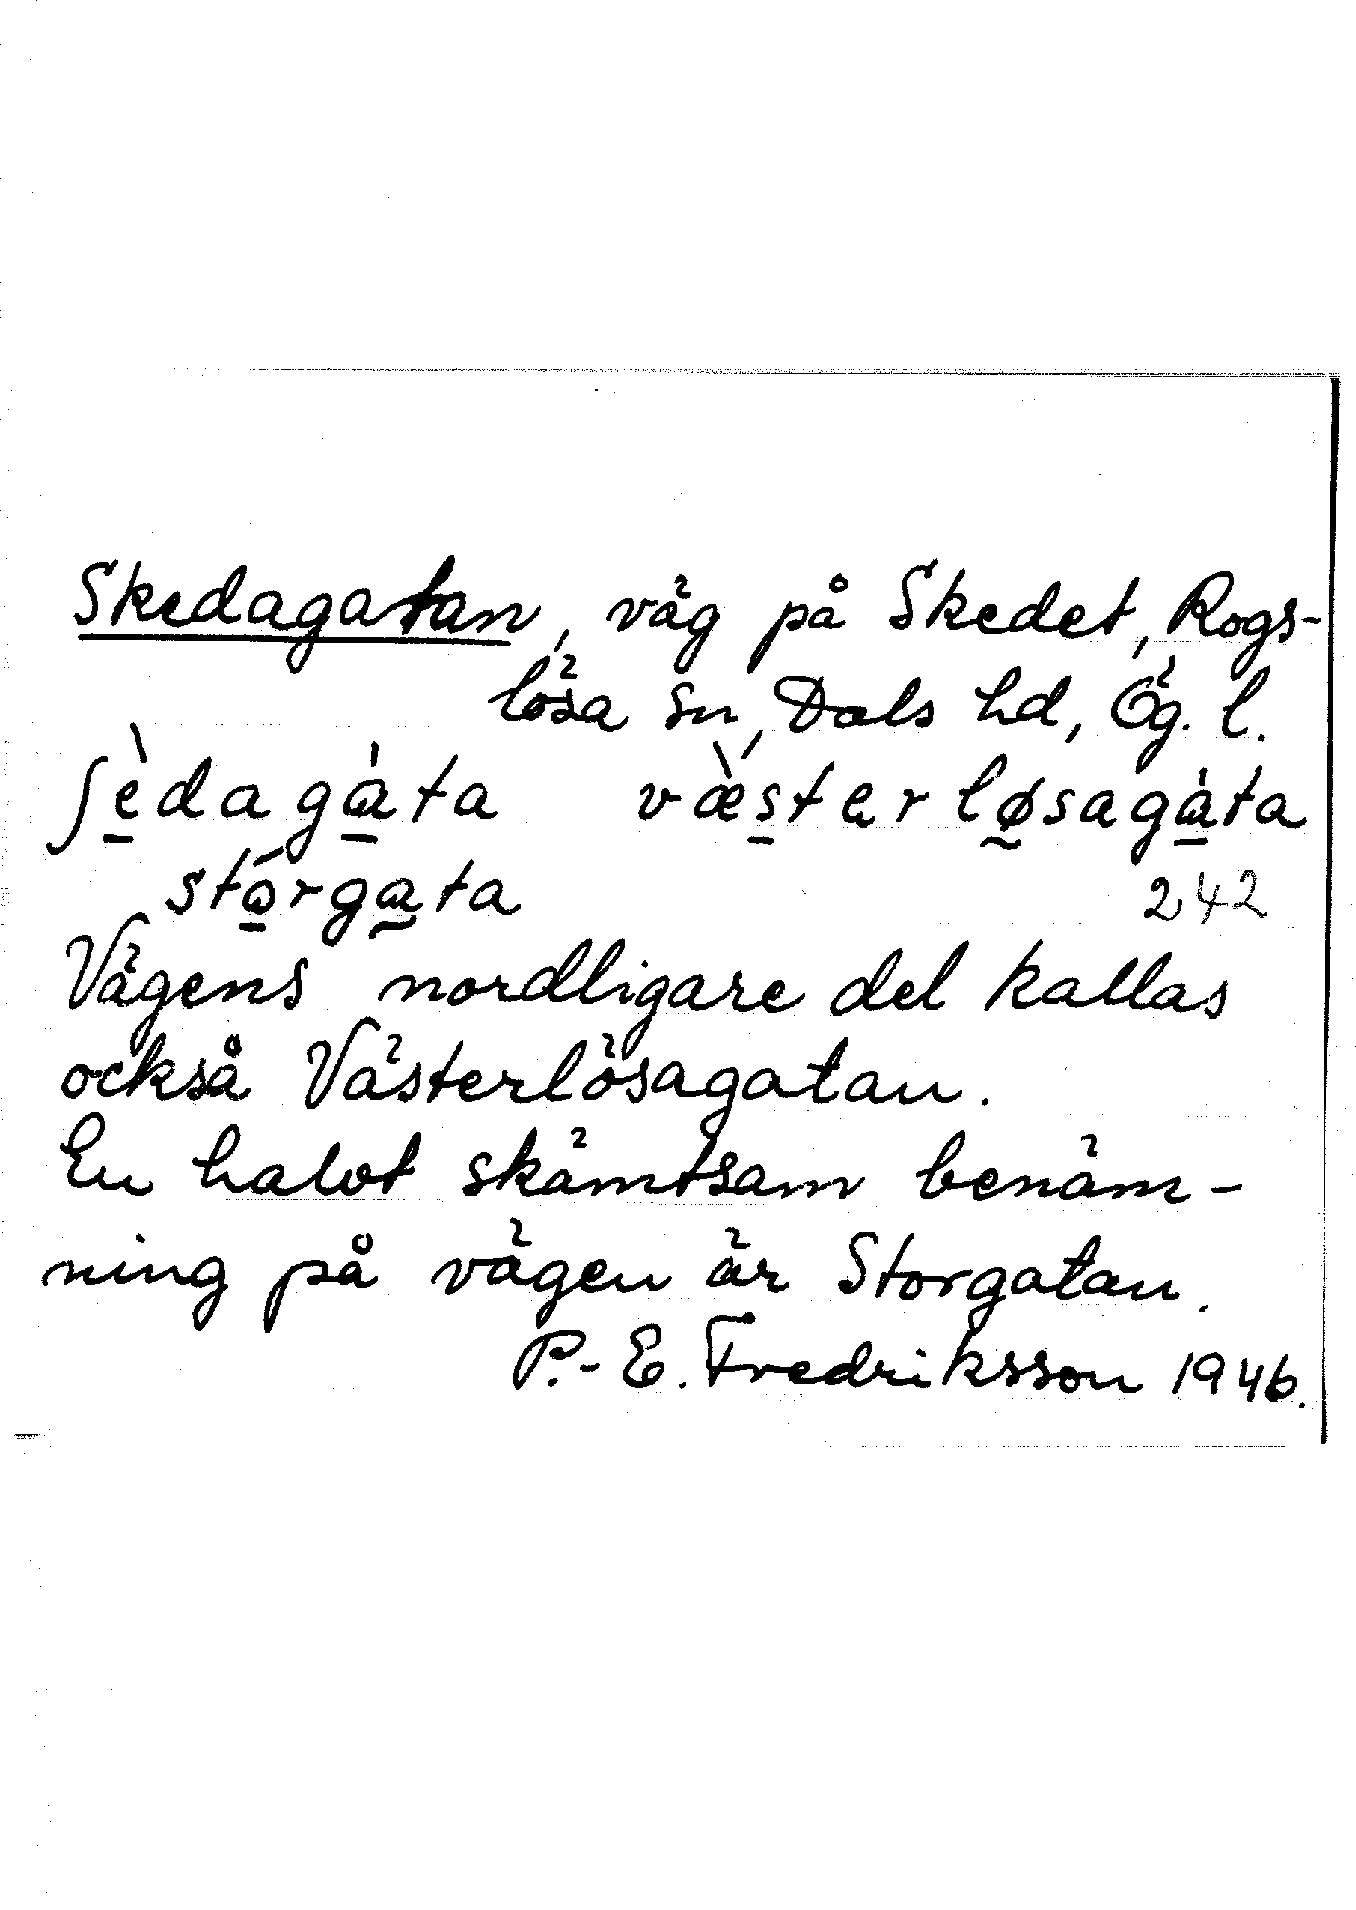 Skedagatan, väg på Skedet, Rogs-
lösa sn, Dals hd, Ög. l.
ʃèdagàta væ̀sterløsagàta
stórgata
242
Vägens nordligare del kallas
också Västerlösagatan.
En halvt skämtsam benäm-
ning på vägen är Storgatan.
P.-E. Fredriksson 1946.